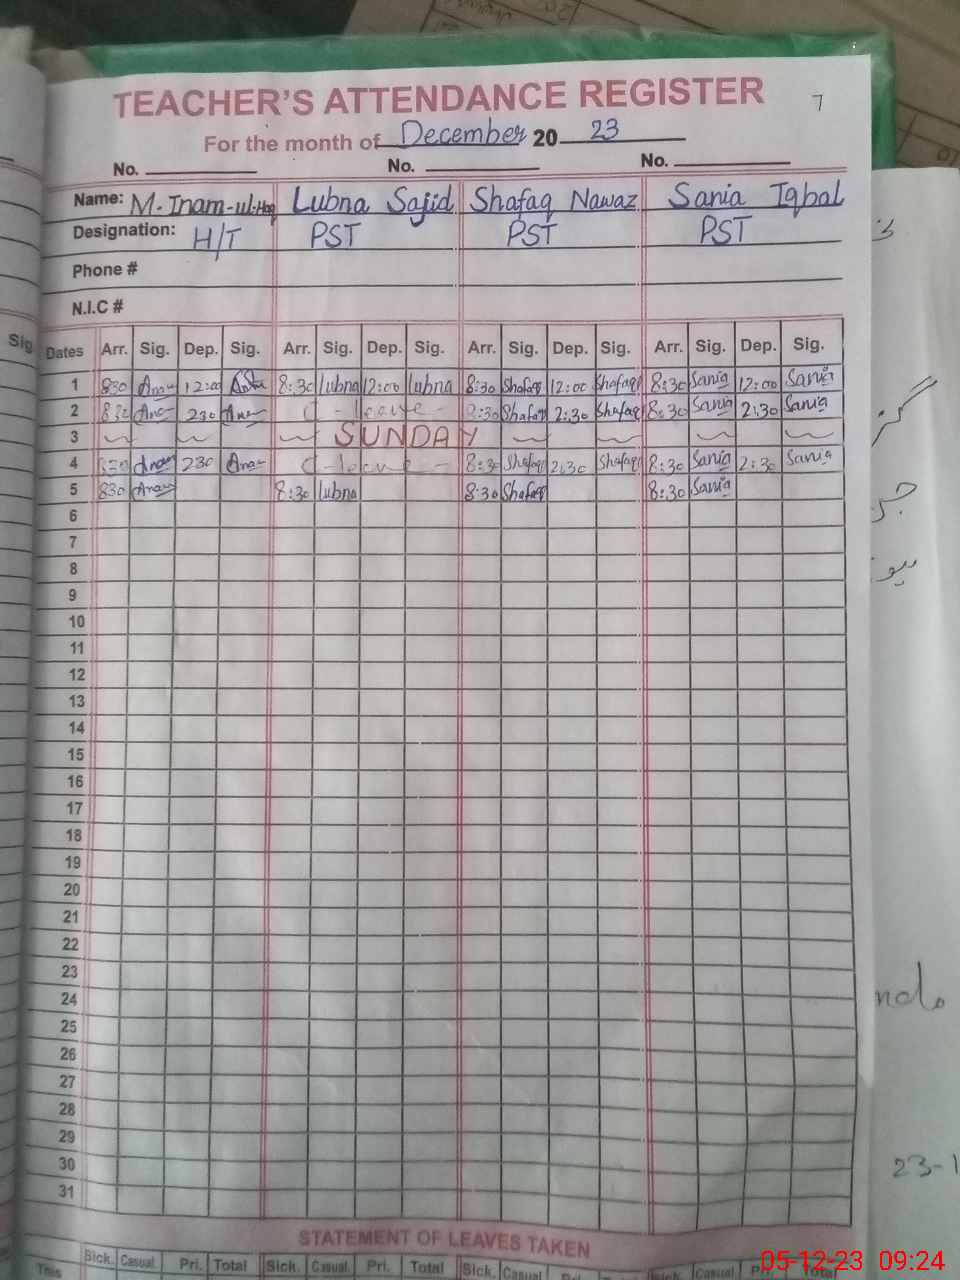 TEACHER'S ATTENDANCE REGISTER 7
For the month of December 20 23
No. No. No.
Name: M. Inam-ul-Haq Lubna Sajid Shafaq Nawaz Sania Iqbal
Designation: H/T PST PST PST
Phone #
N.I.C #
Sig.
Dates Arr. Sig. Dep. Sig. Arr. Sig. Dep. Sig. Arr. Sig. Dep. Sig. Arr. Sig. Dep. Sig.
1 830 12:00 8:30 lubna 12:00 lubna 8:30 Shafaq 12:00 Shafaq 8:30 Sania 12:00 Sania
2 830 230 C - leave - 8:30 Shafaq 2:30 Shafaq 8:30 Sania 2:30 Sania
3 SUNDAY
4 830 230 C - leave - 8:30 Shafaq 2:30 Shafaq 8:30 Sania 2:30 Sania
5 830 8:30 lubna 8:30 Shafaq 8:30 Sania
6
7
8
9
10
11
12
13
14
15
16
17
18
19
20
21
22
23
24
25
26
27
28
29
30
31
23-1
STATEMENT OF LEAVES TAKEN
This Sick. Casual Pri. Total Sick. Casual. Pri. Total Sick. Casual Pri. Total Sick. Casual Pri. Total
05-12-23 09:24